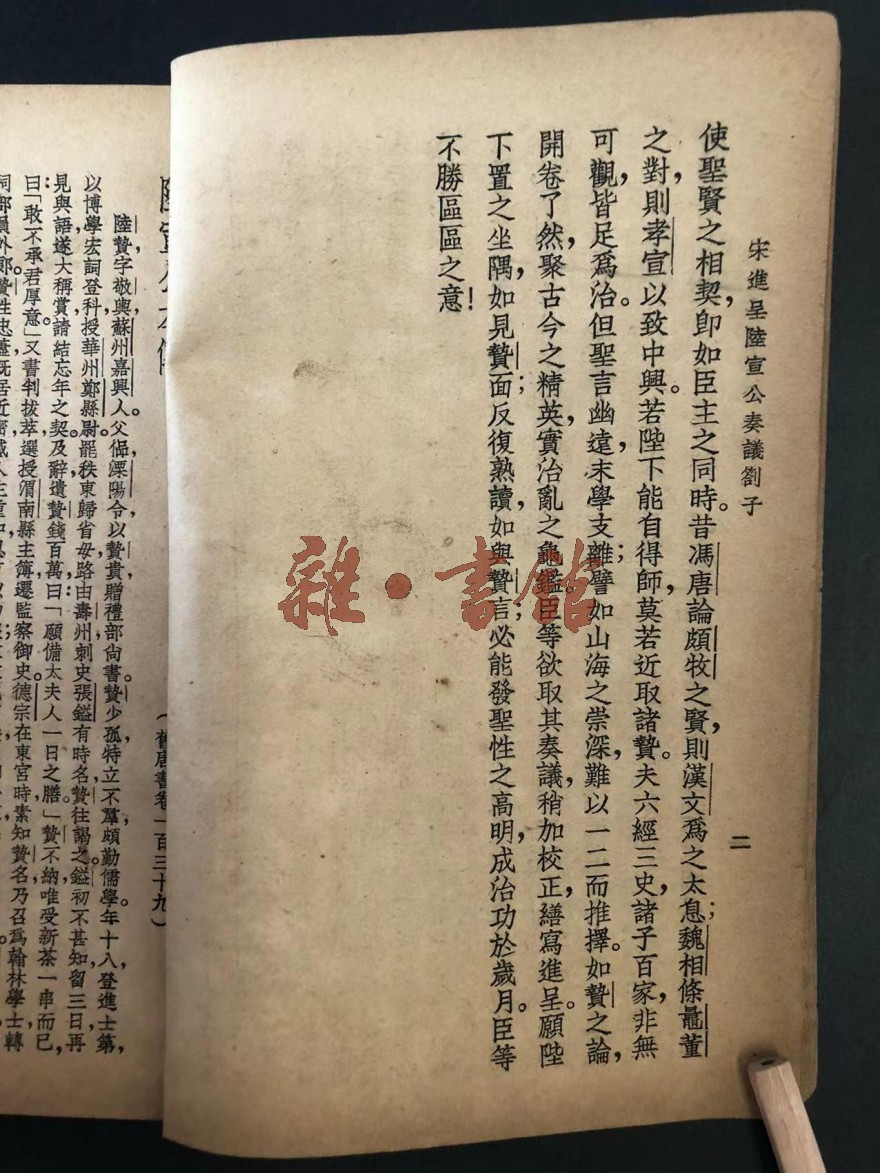 宋進呈陸宣公奏議劄子
二
使聖賢之相契，卽如臣主之同時。昔馮唐論頗牧之賢，則漢文爲之太息；魏相條鼂董
之對，則孝宣以致中興。若陛下能自得師，莫若近取諸贄。夫六經三史，諸子百家，非無
可觀，皆足爲治。但聖言幽遠，末學支離；譬如山海之崇深，難以一二而推擇。如贄之論，
開卷了然，聚古今之精英，實治亂之龜鑑。臣等欲取其奏議，稍加校正，繕寫進呈。願陛
下置之坐隅，如見贄面；反復熟讀，如與贄言；必能發聖性之高明，成治功於歲月。臣等
不勝區區之意！
雜·書館
（舊唐書卷一百三十九）
陸贄，字敬輿，蘇州嘉興人。父侃，溧陽令，以贄貴，贈禮部尚書。贄少孤，特立不羣，頗勤儒學。年十八登進士第，
以博學宏詞登科，授華州鄭縣尉。罷秩，東歸省母，路由壽州，刺史張鎰有時名，贄往謁之。鎰初不甚知，留三日，再
見與語，遂大稱賞，請結忘年之契。及辭，遺贄錢百萬，曰：「願備太夫人一日之膳。」贄不納，唯受新茶一串而已，
曰：「敢不承君厚意。」又書判拔萃，選授渭南縣主簿，遷監察御史。德宗在東宮時，素知贄名，乃召爲翰林學士，轉
祠部員外郎。贄性忠藎，既居近密，感人主重